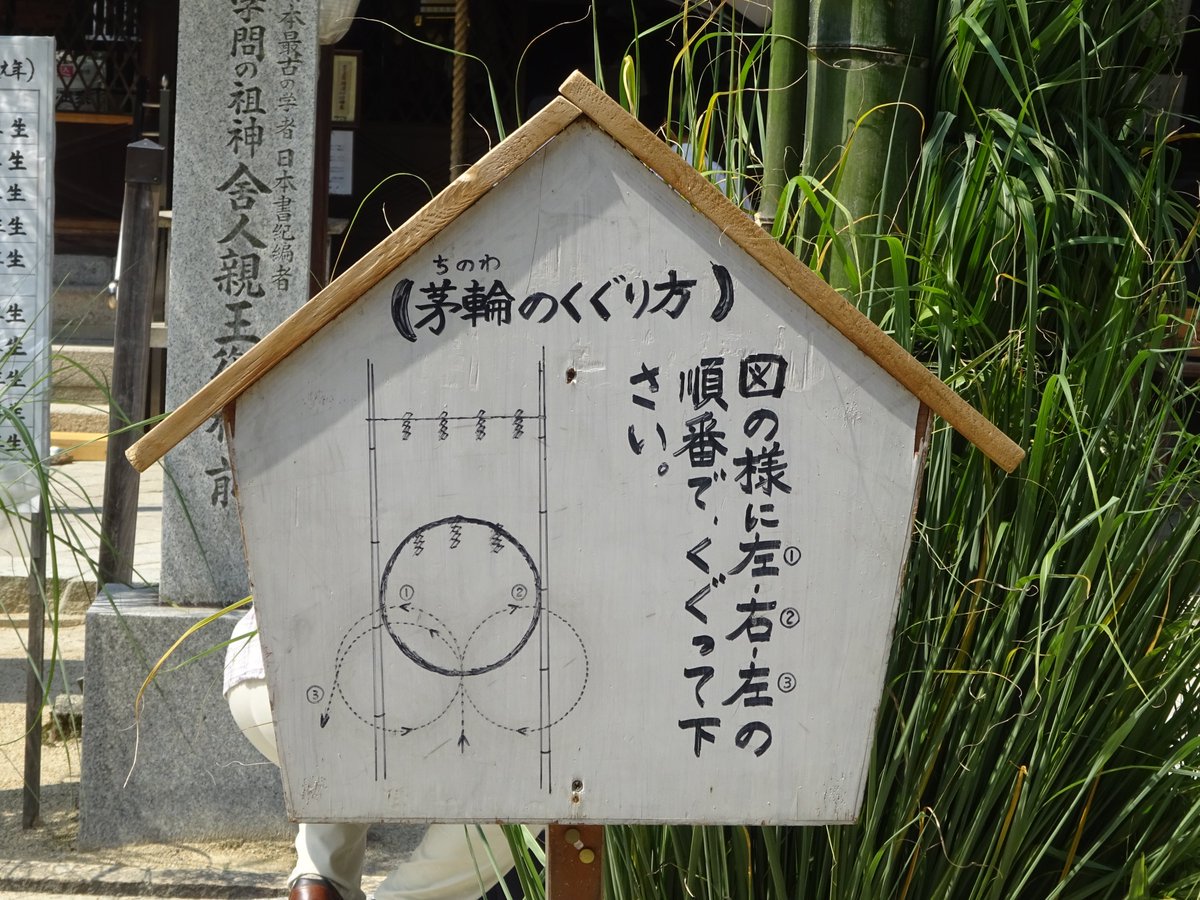 ちのわ
《茅輪のくぐり方》
図の様に左①-右②-左③の
順番で、くぐって下
さい。
①
②
③
本最古の学者 日本書紀編者
学問の祖神 舎人親王
前
年)
生
生
生
生
生
生
生
生
生